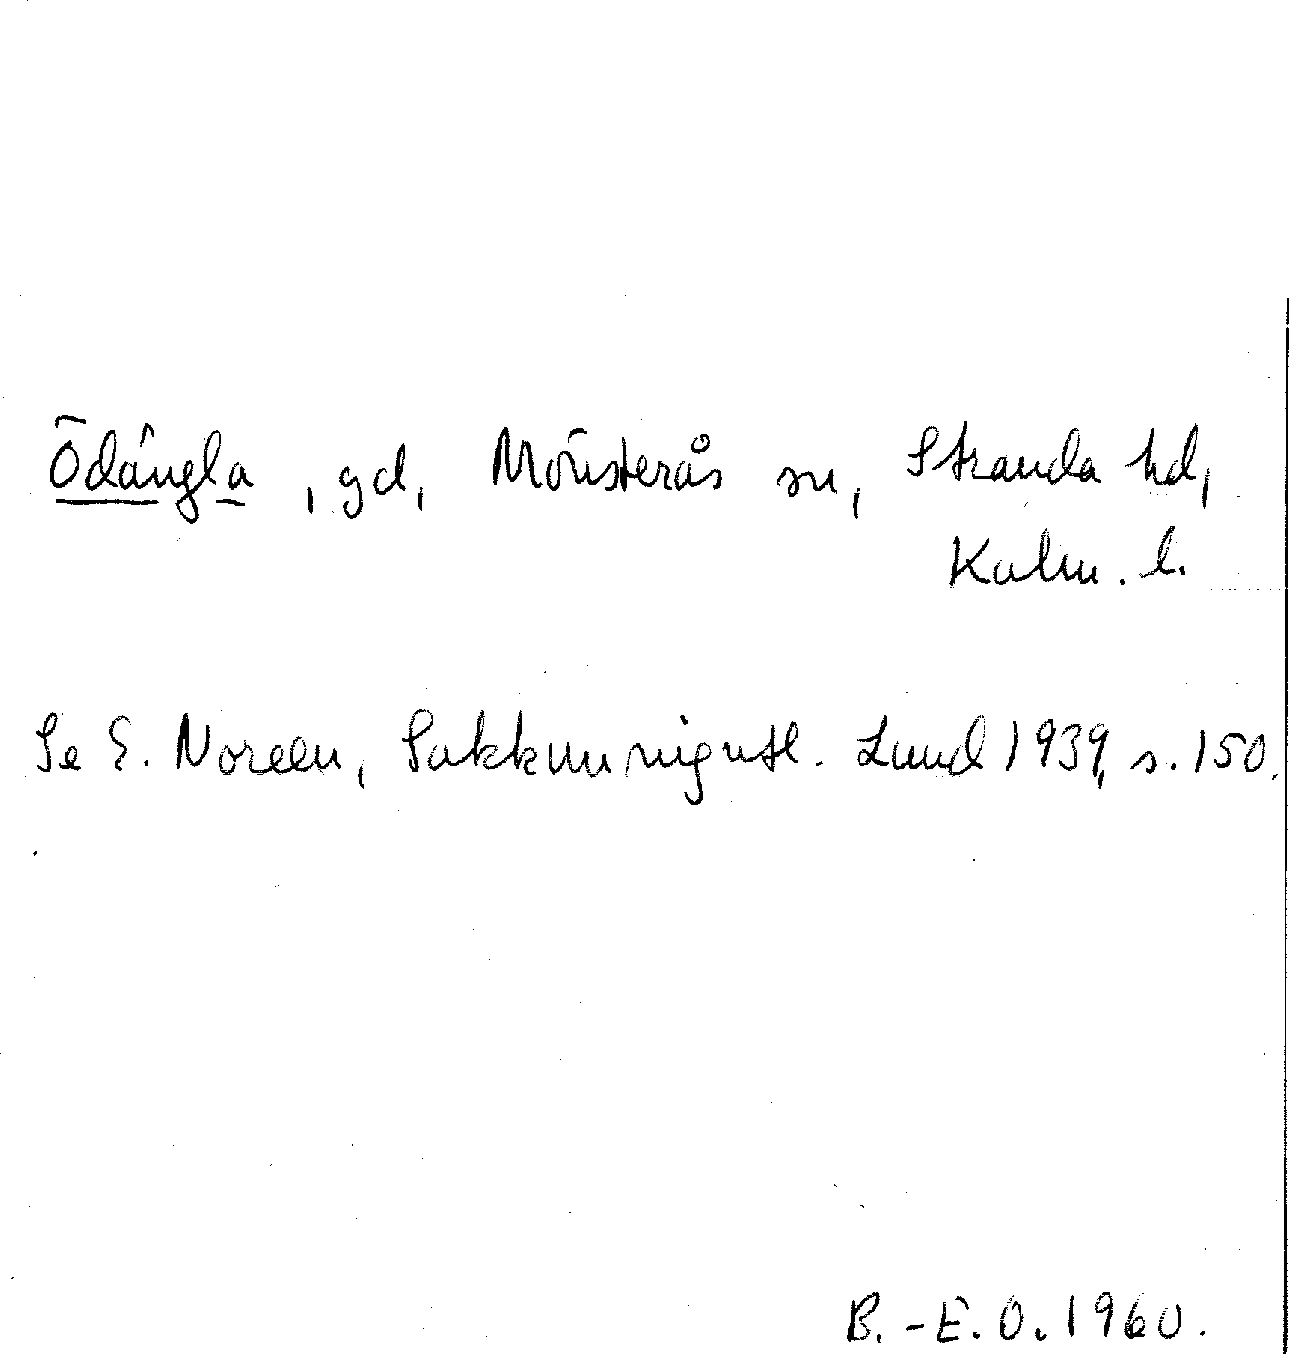 Ödängla, gd, Mönsterås sn, Stranda hd,
Kalm. l.
Se E. Noreen, Sakkunnigutl. Lund 1939, s. 150.
B.-E.O. 1960.